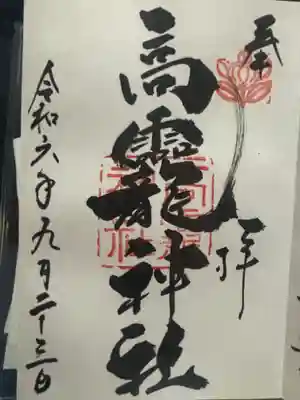 奉拝
高龗神社
令和六年九月二十三日